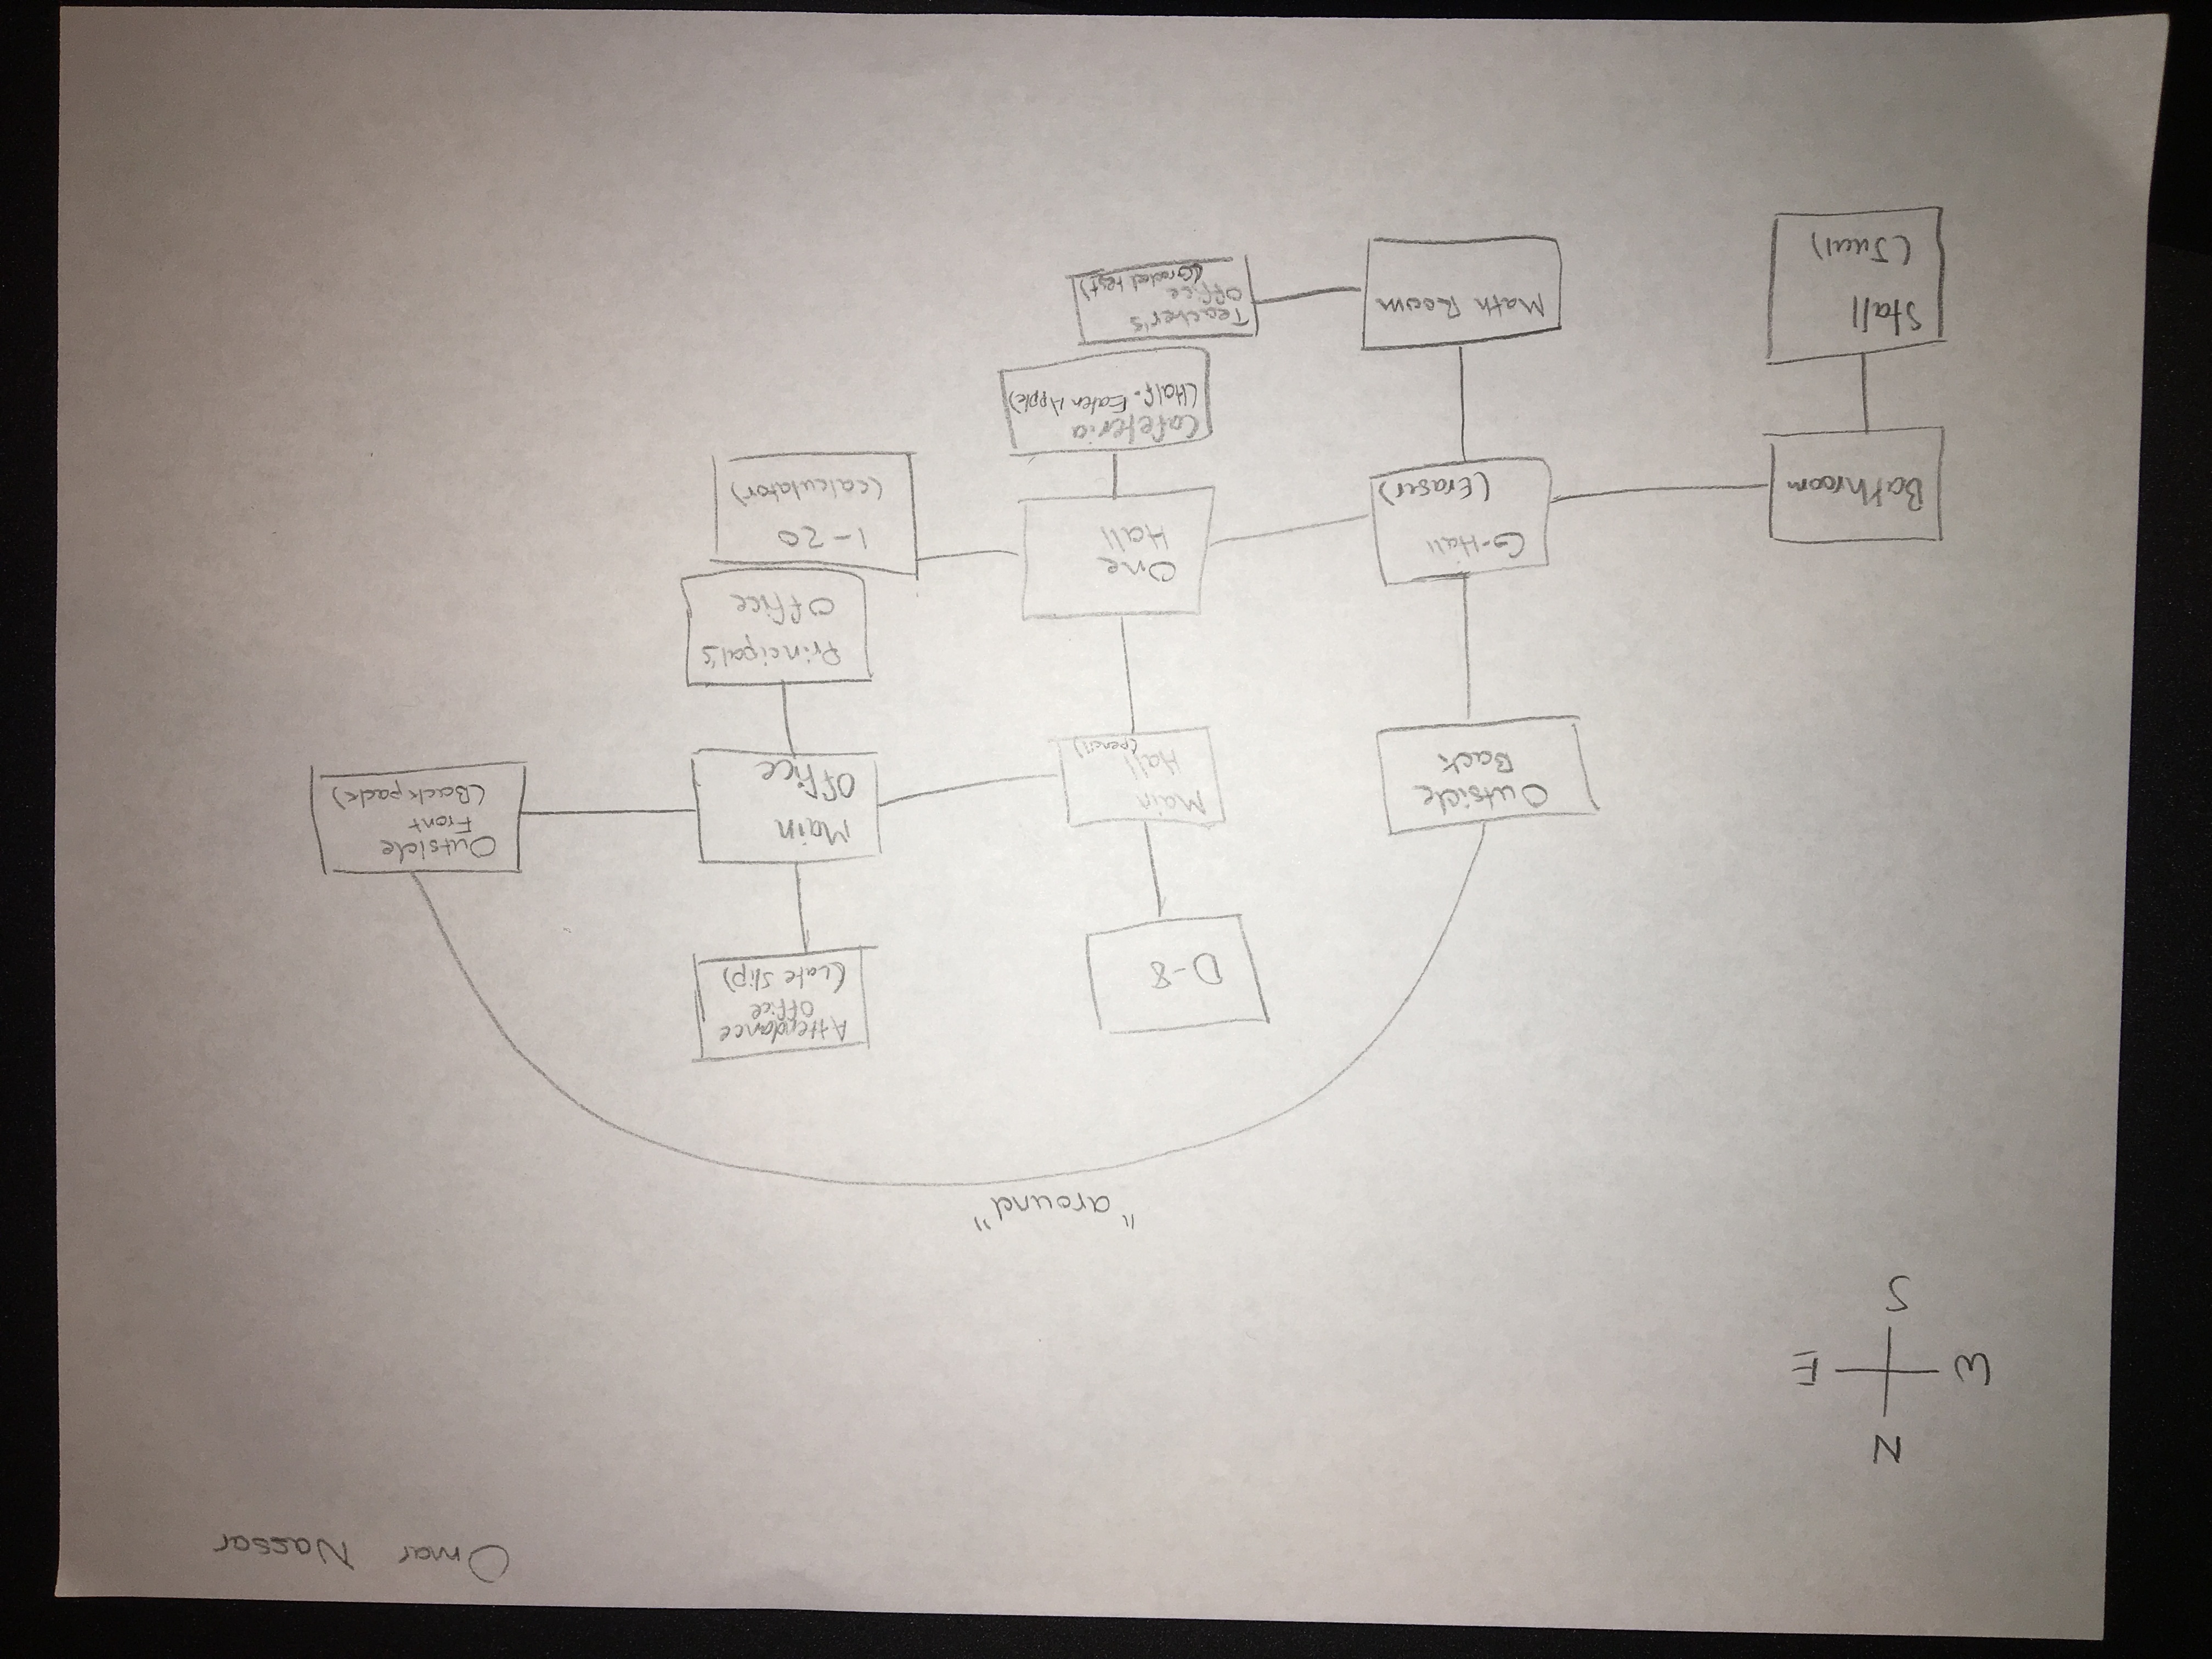 Omar Nassar
N
W E
S
"around"
D-8
Attendance
Office
(Late Slip)
Outside
Back
Main
Hall
(pencil)
Main
Office
Outside
Front
(Backpack)
Principal's
Office
Bathroom
G-Hall
(Eraser)
One
Hall
1-20
(calculator)
Cafeteria
(Half-Eaten Apple)
Stall
(Juul)
Math Room
Teacher's
Office
(Graded test)